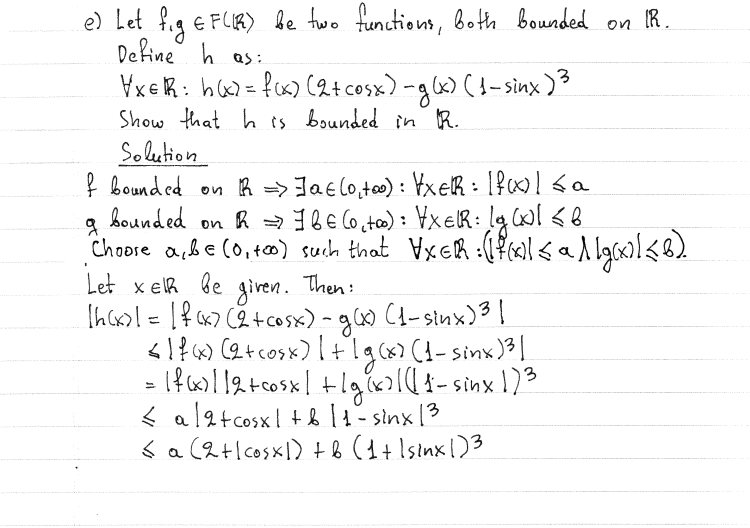 e) Let f,g ∈ F(ℝ) be two functions, both bounded on ℝ.
Define h as:
∀x∈ℝ: h(x) = f(x)(2+cosx) − g(x)(1−sinx)³
Show that h is bounded in ℝ.
Solution
f bounded on ℝ ⇒ ∃a∈(0,+∞): ∀x∈ℝ: |f(x)| ≤ a
g bounded on ℝ ⇒ ∃b∈(0,+∞): ∀x∈ℝ: |g(x)| ≤ b
Choose a,b∈(0,+∞) such that ∀x∈ℝ:(|f(x)| ≤ a ∧ |g(x)| ≤ b).
Let x∈ℝ be given. Then:
|h(x)| = |f(x)(2+cosx) − g(x)(1−sinx)³|
≤ |f(x)(2+cosx)| + |g(x)(1−sinx)³|
= |f(x)||2+cosx| + |g(x)|(|1−sinx|)³
≤ a|2+cosx| + b|1−sinx|³
≤ a(2+|cosx|) + b(1+|sinx|)³